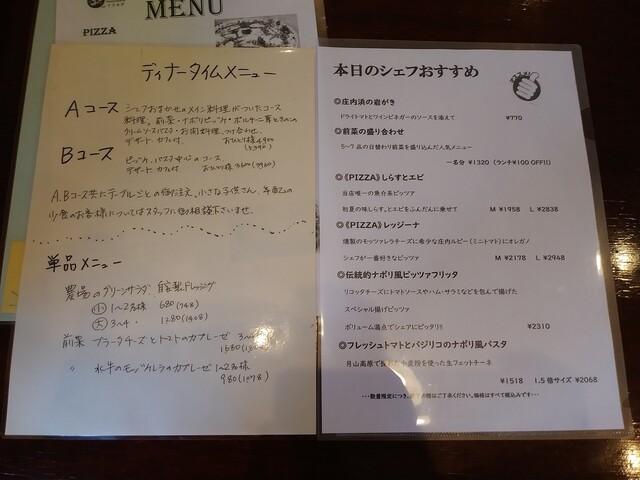 MENU
PIZZA
ディナータイムメニュー
Aコース シェフおまかせのメイン料理がついたコース
料理。前菜・ナポリピッツァ・ポルチーニ茸ときのこの
クリームソースパスタ・お肉料理、つけ合わせ、
デザート カフェ付 おひとり様 4900
(5390)
Bコース ピッツァ、パスタ中心のコース
デザート カフェ付 おひとり様 3600(3960)
A、Bコース共にテーブルごとの御注文。小さな子供さん、年配の
少食のお客様についてはスタッフに御相談下さいませ。
単品メニュー
農場のグリーンサラダ 自家製ドレッシング
小 1〜2名様 680(748)
大 3〜4 1280(1408)
前菜 ブラータチーズとトマトのカプレーゼ 3〜
1680
〃 水牛のモッツァレラのカプレーゼ 1〜2名様
980(1078)
本日のシェフおすすめ
◎庄内浜の岩がき
ドライトマトとワインビネガーのソースを添えて ¥770
◎前菜の盛り合わせ
5〜7品の日替わり前菜を盛り込んだ人気メニュー
一名分 ¥1320 (ランチ¥100 OFF!!)
◎《PIZZA》しらすとエビ
当店唯一の魚介系ピッツァ
初夏の味しらす。とエビをふんだんに乗せて M ¥1958 L ¥2838
◎《PIZZA》レッジーナ
燻製のモッツァレラチーズに希少な庄内ルビー(ミニトマト)にオレガノ
シェフが一番好きなピッツァ M ¥2178 L ¥2948
◎伝統的ナポリ風ピッツァフリッタ
リコッタチーズにトマトソースやハム・サラミなどを包んで揚げた
スペシャル揚げピッツァ
ボリューム満点でシェアにピッタリ!! ¥2310
◎フレッシュトマトとバジリコのナポリ風パスタ
月山高原で 小麦粉を使った生フェットチーネ
¥1518 1.5倍サイズ ¥2068
・・・数量限定につき、終了の際はご了承ください。価格はすべて税込みです・・・